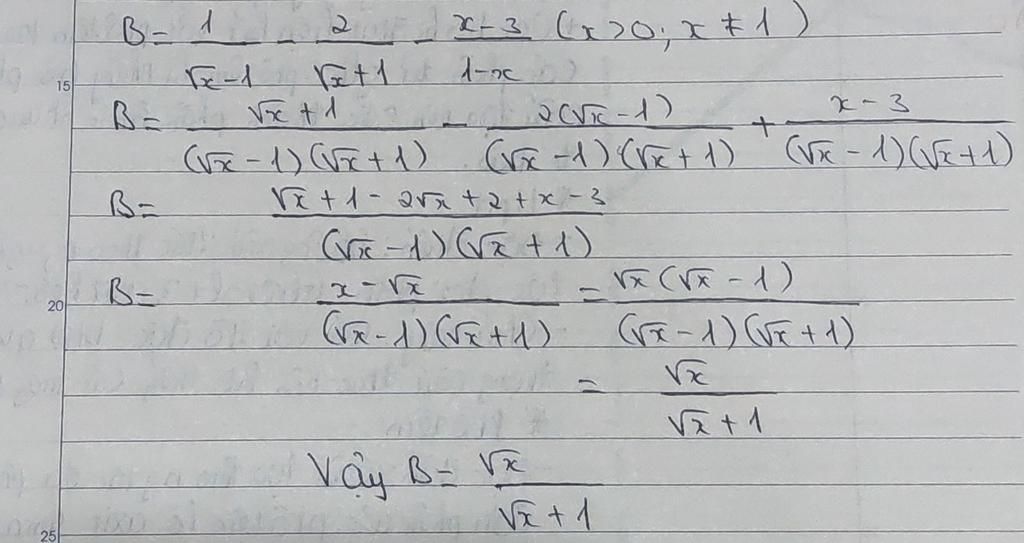 B = 1/(√x - 1) - 2/(√x + 1) - (x - 3)/(1 - x) (x > 0; x ≠ 1)
15
B = (√x + 1)/((√x - 1)(√x + 1)) - 2(√x - 1)/((√x - 1)(√x + 1)) + (x - 3)/((√x - 1)(√x + 1))
B = (√x + 1 - 2√x + 2 + x - 3)/((√x - 1)(√x + 1))
20
B = (x - √x)/((√x - 1)(√x + 1)) = √x(√x - 1)/((√x - 1)(√x + 1))
= √x/(√x + 1)
Vậy B = √x/(√x + 1)
25